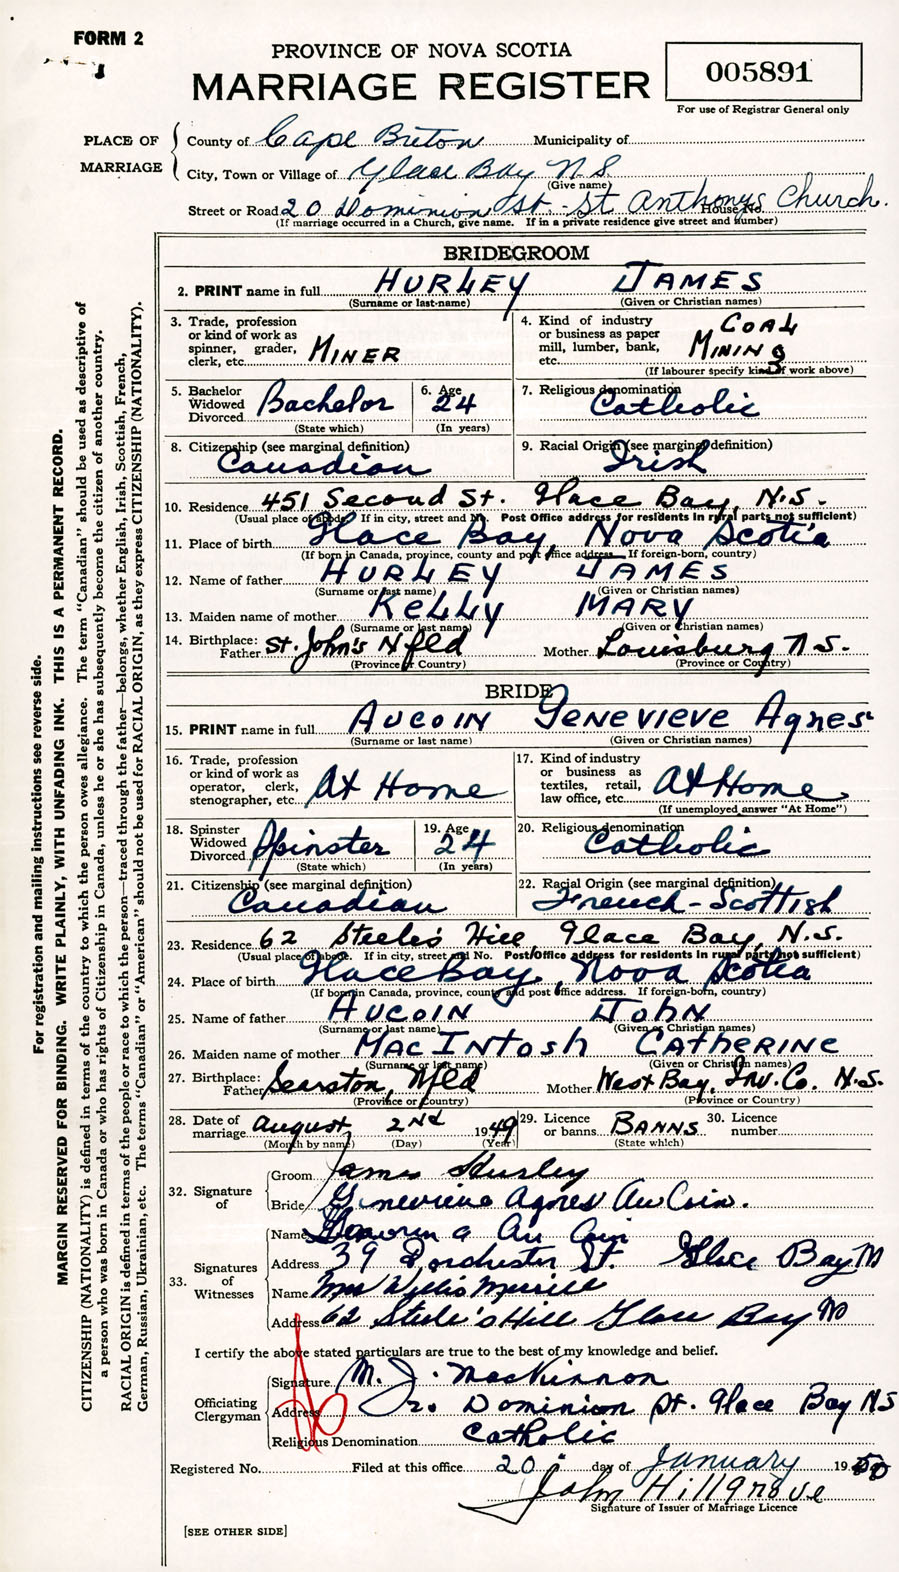 FORM 2
PROVINCE OF NOVA SCOTIA
MARRIAGE REGISTER
005891
For use of Registrar General only
PLACE OF MARRIAGE
County of Cape Breton Municipality of
City, Town or Village of Glace Bay N.S.
(Give name)
Street or Road 20 Dominion St. - St Anthonys Church. House No.
(If marriage occurred in a Church, give name. If in a private residence give street and number)
BRIDEGROOM
2. PRINT name in full HURLEY JAMES
(Surname or last-name) (Given or Christian names)
3. Trade, profession or kind of work as spinner, grader, clerk, etc. MINER
4. Kind of industry or business as paper mill, lumber, bank, etc. COAL MINING
(If labourer specify kind of work above)
5. Bachelor Widowed Divorced Bachelor
(State which)
6. Age 24
(In years)
7. Religious denomination Catholic
8. Citizenship (see marginal definition) Canadian
9. Racial Origin (see marginal definition) Irish
10. Residence 451 Second St. Glace Bay, N.S.
(Usual place of abode. If in city, street and No. Post Office address for residents in rural parts not sufficient)
11. Place of birth Glace Bay, Nova Scotia
(If born in Canada, province, county and post office address. If foreign-born, country)
12. Name of father HURLEY JAMES
(Surname or last name) (Given or Christian names)
13. Maiden name of mother KELLY MARY
(Surname or last name) (Given or Christian names)
14. Birthplace: Father St. John's Nfld Mother Louisburg N.S.
(Province or Country) (Province or Country)
BRIDE
15. PRINT name in full AUCOIN GENEVIEVE Agnes
(Surname or last name) (Given or Christian names)
16. Trade, profession or kind of work as operator, clerk, stenographer, etc. At Home
17. Kind of industry or business as textiles, retail, law office, etc. At Home
(If unemployed answer "At Home")
18. Spinster Widowed Divorced Spinster
(State which)
19. Age 24
(In years)
20. Religious denomination Catholic
21. Citizenship (see marginal definition) Canadian
22. Racial Origin (see marginal definition) French-Scottish
23. Residence 62 Steele's Hill, Glace Bay, N.S.
(Usual place of abode. If in city, street and No. Post Office address for residents in rural parts not sufficient)
24. Place of birth Glace Bay, Nova Scotia
(If born in Canada, province, county and post office address. If foreign-born, country)
25. Name of father AUCOIN JOHN
(Surname or last name) (Given or Christian names)
26. Maiden name of mother MACINTosh CATHERINE
(Surname or last name) (Given or Christian names)
27. Birthplace: Father Searston, Nfld Mother West Bay, Inv. Co. N.S.
(Province or Country) (Province or Country)
28. Date of marriage August 2nd 1949
(Month by name) (Day) (Year)
29. Licence or banns BANNS
(State which)
30. Licence number
32. Signature of
Groom James Hurley
Bride Genevieve Agnes AuCoin.
33. Signatures of Witnesses
Name a Au Coin
Address 39 Dorchester St. Glace Bay
Name Mrs Willis Merrill
Address 62 Steele's Hill Glace Bay
I certify the above stated particulars are true to the best of my knowledge and belief.
Officiating Clergyman
Signature M. J. MacKinnon
Address Dominion St. Glace Bay NS
Religious Denomination Catholic
Registered No. Filed at this office 20 day of January 1950
John Hillgrove
Signature of Issuer of Marriage Licence
[SEE OTHER SIDE]
For registration and mailing instructions see reverse side.
MARGIN RESERVED FOR BINDING. WRITE PLAINLY, WITH UNFADING INK. THIS IS A PERMANENT RECORD.
CITIZENSHIP (NATIONALITY) is defined in terms of the country to which the person owes allegiance. The term "Canadian" should be used as descriptive of
a person who was born in Canada or who has rights of Citizenship in Canada, unless he or she has subsequently become the citizen of another country.
RACIAL ORIGIN is defined in terms of the people or race to which the person—traced through the father—belongs, whether English, Irish, Scottish, French,
German, Russian, Ukrainian, etc. The terms "Canadian" or "American" should not be used for RACIAL ORIGIN, as they express CITIZENSHIP (NATIONALITY).